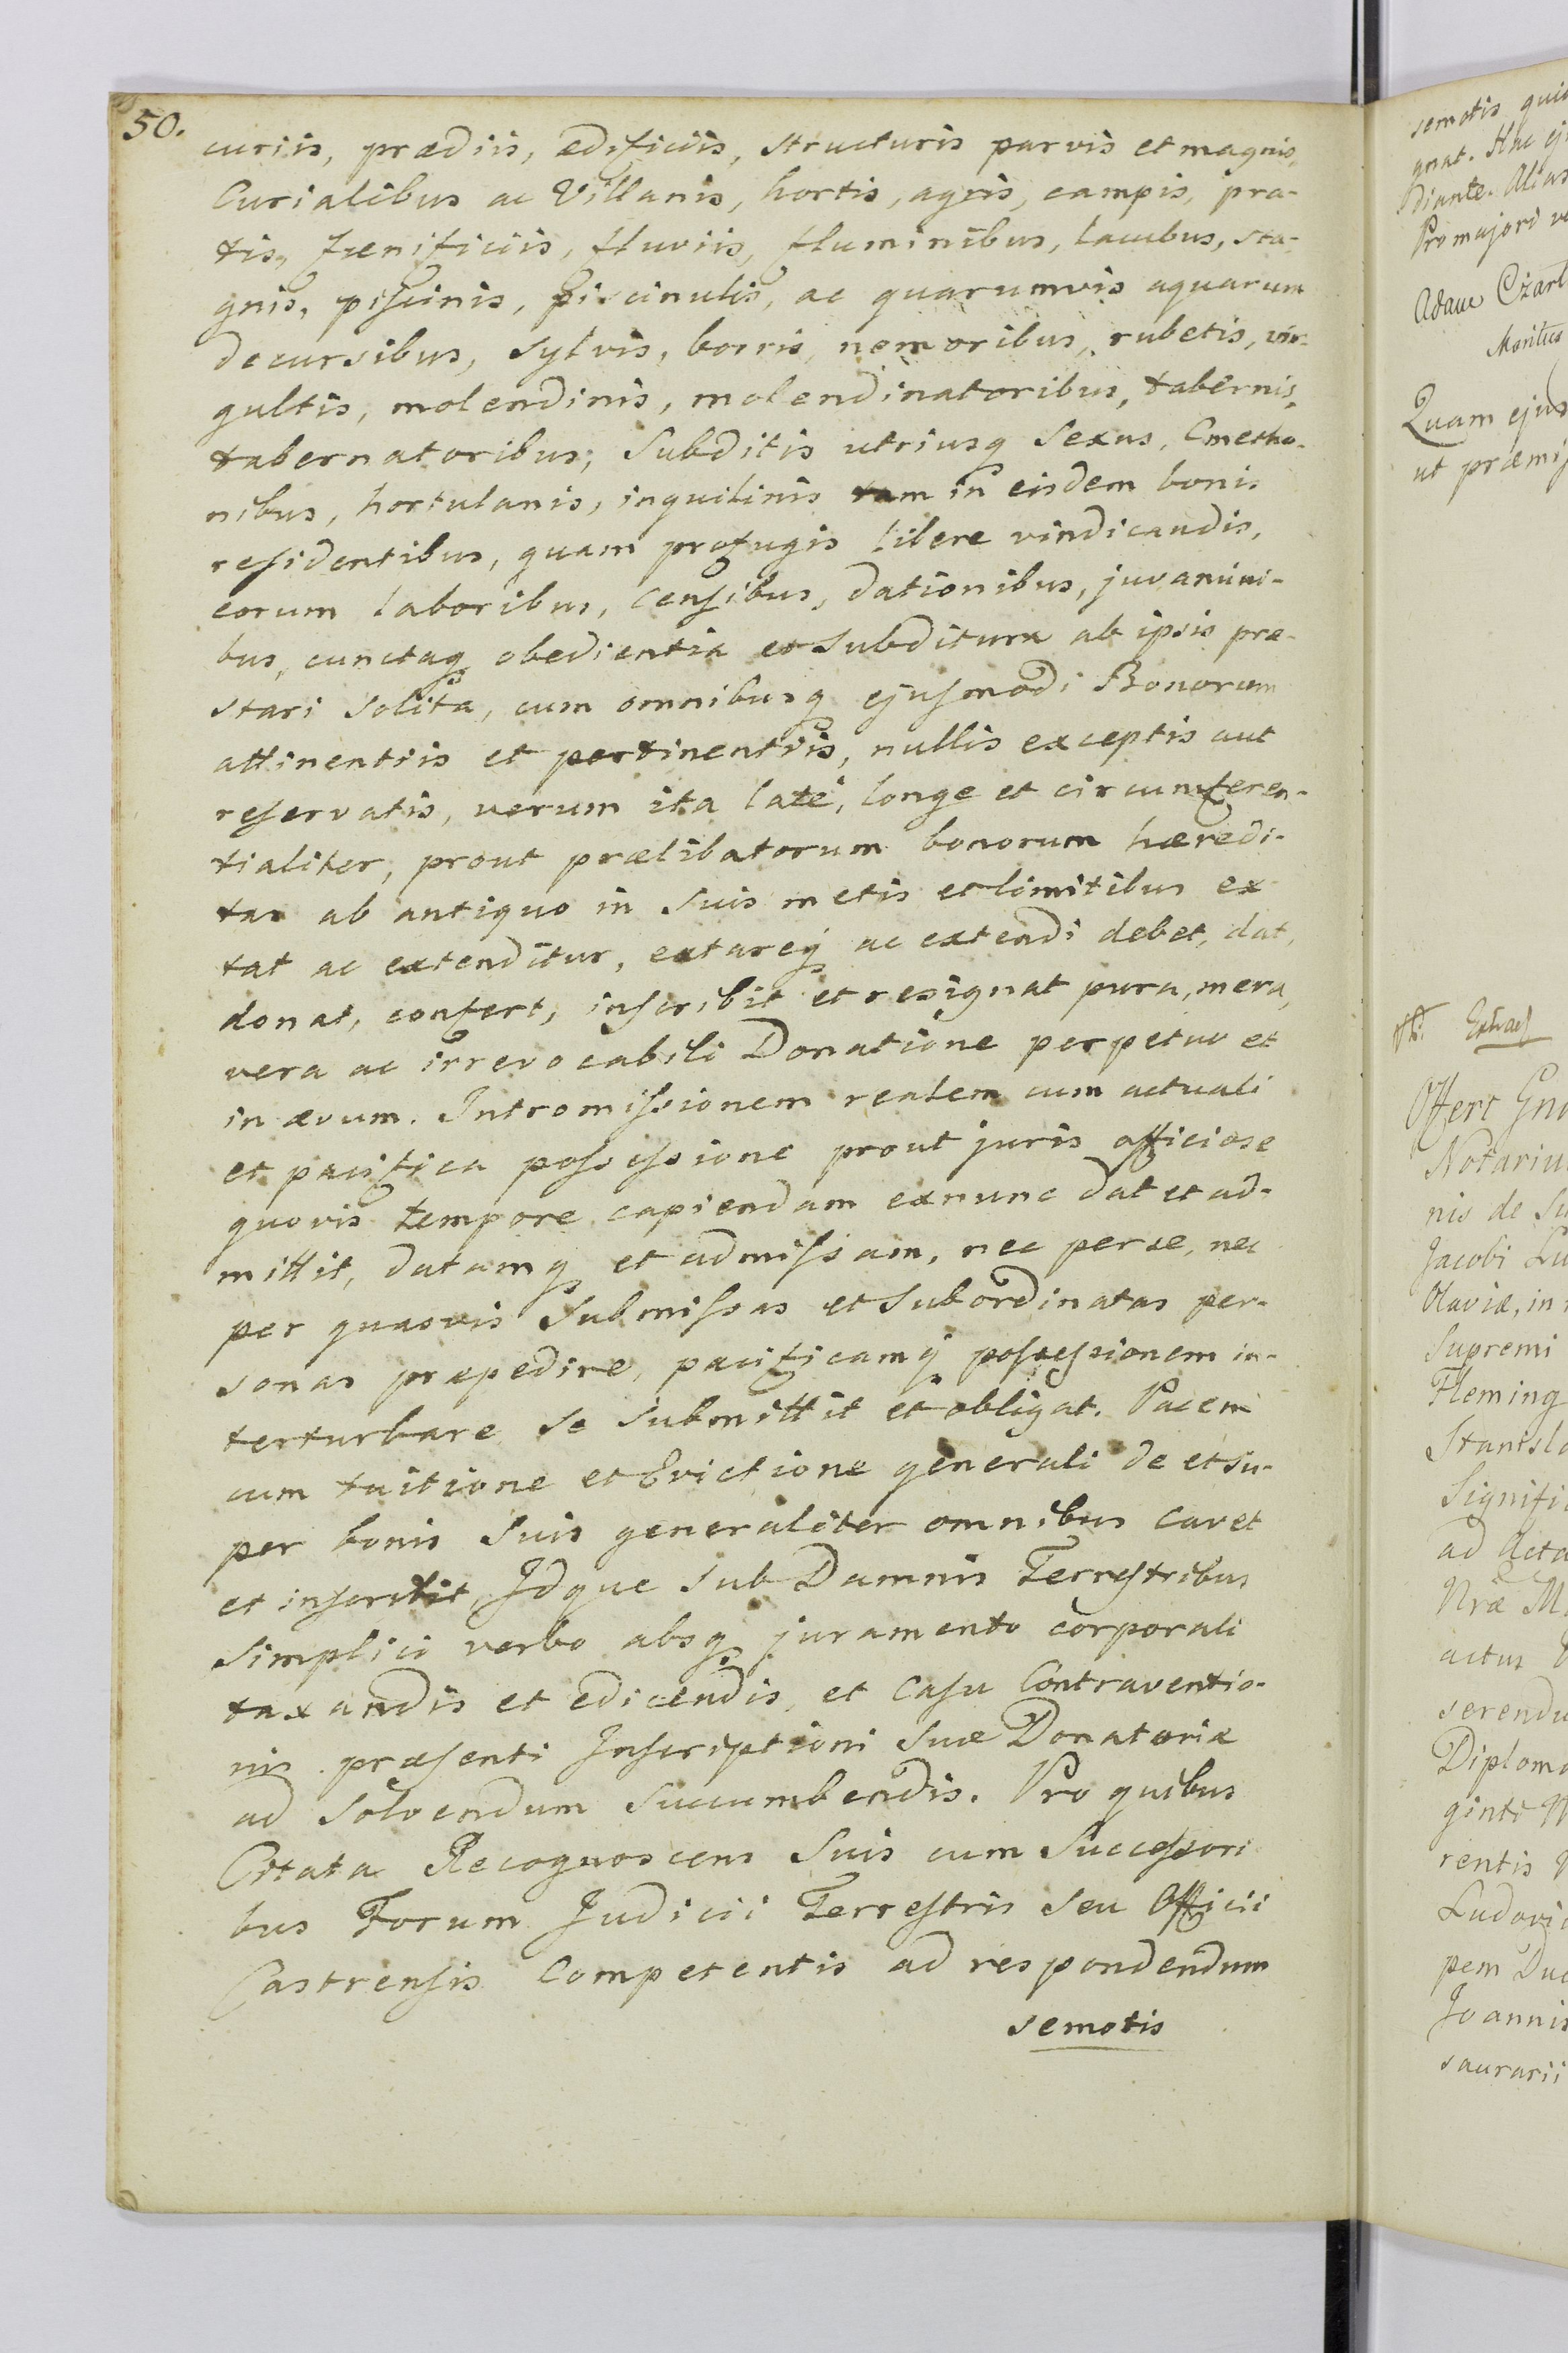 50.
curiis, prædiis, ædificiis, structuris parvis et magnis,
Curialibus ac Villanis, hortis, agris, campis, pra-
tis, fœnificiis, fluviis, fluminibus, lacubus, sta-
gnis, piscinis, piscinulis, ac quarumvis aquarum
decursibus, sylvis, borris, nemoribus, rubetis, vir-
gultis, molendinis, molendinatoribus, tabernis,
tabernatoribus, Subditis utriusq Sexus, Cmetho-
nibus, hortulanis, inquilinis tam in eisdem bonis
residentibus, quam profugis libere vindicandis,
eorum laboribus, Censibus, dationibus, juvamini-
bus, cunctaq obedientia et Subditura ab ipsis præ-
stari solita, cum omnibusq ejusmodi Bonorum
attinentiis et pertinentiis, nullis exceptis aut
reservatis, verum ita late, longe et circumferen-
tialiter, prout prælibatorum bonorum hæredi-
tas ab antiquo in suis metis et limitibus ex
tat ac extenditur, extareq ac extendi debet, dat,
donat, confert, inscribit et resignat pura, mera,
vera ac irrevocabili Donatione perpetuo et
in ævum. Intromissionem realem cum actuali
et pacifica possessione prout juris officiose
quovis tempore capiendam exnunc dat et ad-
mittit, datamq et admissam, nec per se, nec
per quasvis Submissas et Subordinatas per-
sonas præpedire, pacificamq possessionem in-
terturbare se submittit et obligat. Pacem
cum tuitione et Evictione generali de et su-
per bonis Suis generaliter omnibus cavet
et inscribit, Idque sub Damnis Terrestribus
simplici verbo absq juramento corporali
taxandis et edicendis, et Casu Contraventio-
nis præsenti Inscriptioni Suæ Donatoriæ
ad solvendum Succumbendis. Pro quibus
Citata Recognoscens Suis cum Successori
bus Forum Judicii Terrestris seu Officii
Castrensis Competentis ad respondendum
semotis
semotis
gnat. Hac
diante. Alias
Pro majori
Adam
Quam ejus
ut
Offert
nis de
Jacobi
in
Supremi
Fleming
ad Acta
actus
rentis
pem
Joannis